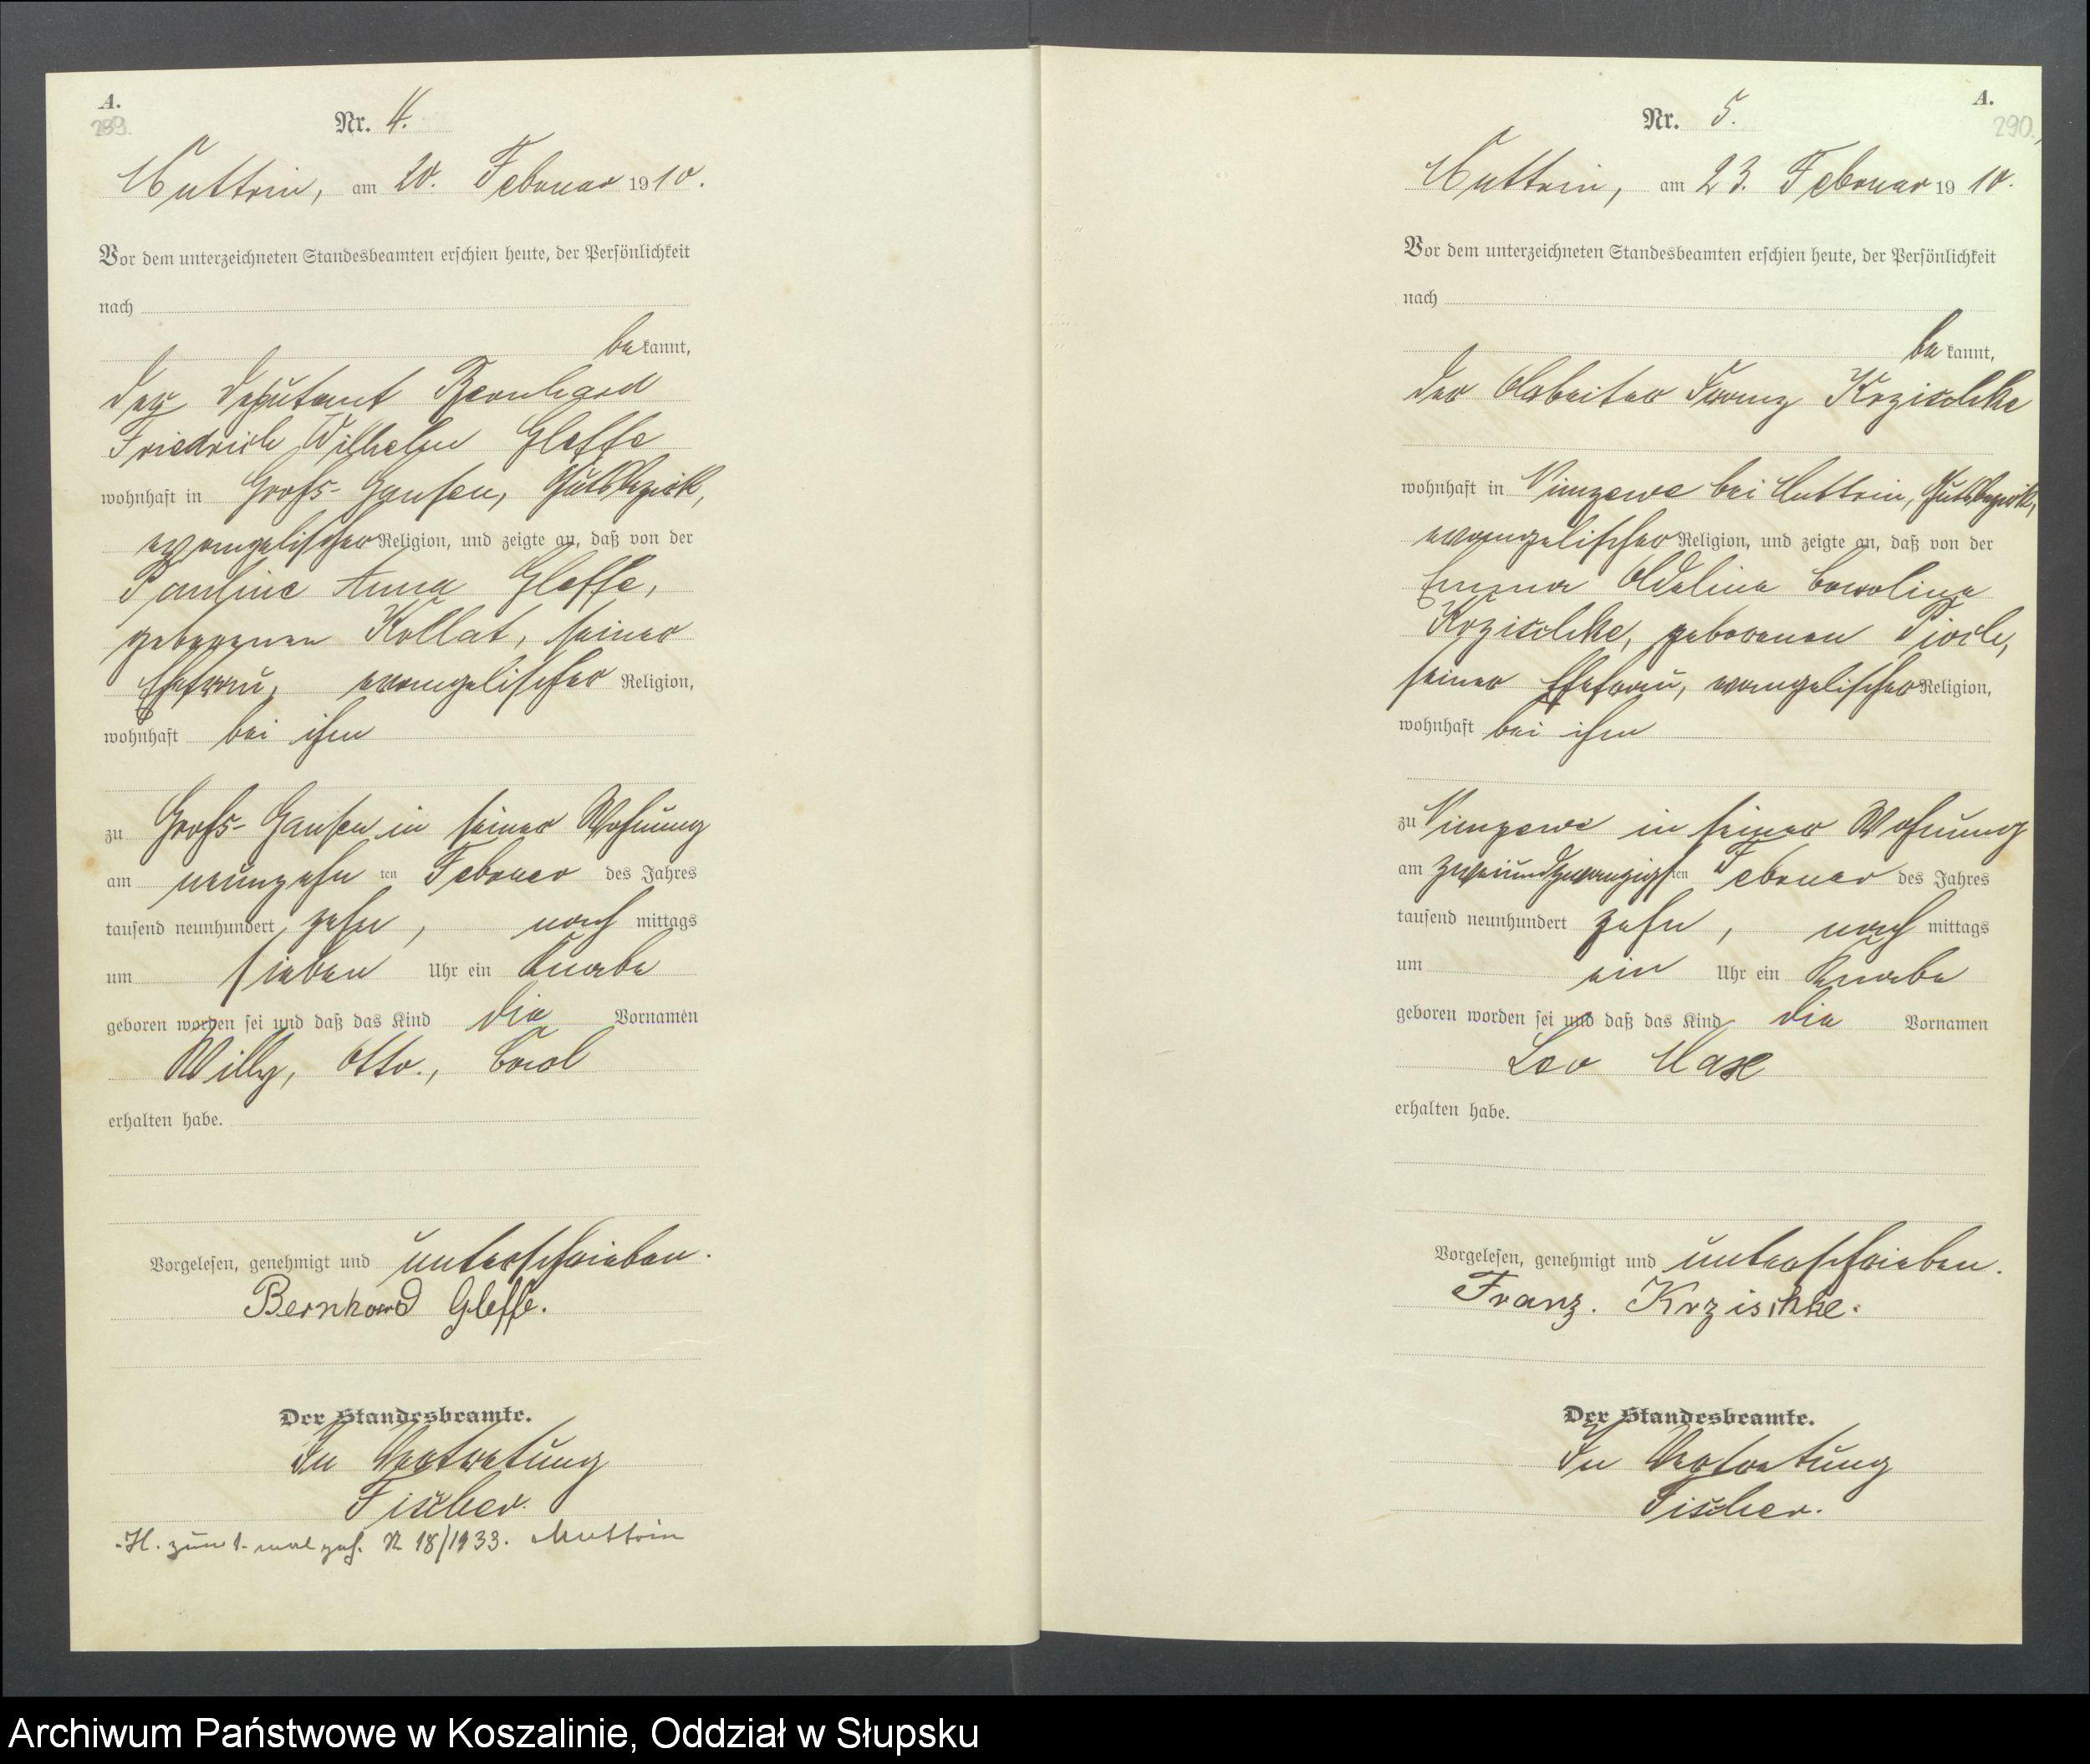 A.
289.
Nr. 4.
Muttrin, am 20. Februar 1910.
Vor dem unterzeichneten Standesbeamten erschien heute, der Persönlichkeit
nach
bekannt,
der Deputant Bernhard
Friedrich Wilhelm Gleffe
wohnhaft in Groß-Gansen, Gutsbezirk,
evangelischer Religion, und zeigte an, daß von der
Pauline Anna Gleffe,
geborenen Kollat, seiner
Ehefrau, evangelischer Religion,
wohnhaft bei ihm
zu Groß-Gansen in seiner Wohnung
am neunzehnten Februar des Jahres
tausend neunhundert zehn, nachmittags
um sieben Uhr ein Knabe
geboren worden sei und daß das Kind die Vornamen
Willy, Otto, Carl
erhalten habe.
Vorgelesen, genehmigt und unterschrieben.
Bernhard Gleffe.
Der Standesbeamte.
In Vertretung
Fischer.
H. zum 1. mal geh. N 18/1933. Muttrin
A.
290.
Nr. 5.
Muttrin, am 23. Februar 1910.
Vor dem unterzeichneten Standesbeamten erschien heute, der Persönlichkeit
nach
bekannt,
der Arbeiter Franz Krzischke
wohnhaft in Nimzewe bei Muttrin, Gutsbezirk,
evangelischer Religion, und zeigte an, daß von der
Emma Adeline Caroline
Krzischke, geborenen Pioch,
seiner Ehefrau, evangelischer Religion,
wohnhaft bei ihm
zu Nimzewe in seiner Wohnung
am zweiundzwanzigsten Februar des Jahres
tausend neunhundert zehn, nachmittags
um ein Uhr ein Knabe
geboren worden sei und daß das Kind die Vornamen
Leo Max
erhalten habe.
Vorgelesen, genehmigt und unterschrieben.
Franz. Krzischke.
Der Standesbeamte.
In Vertretung
Fischer.
Archiwum Państwowe w Koszalinie, Oddział w Słupsku